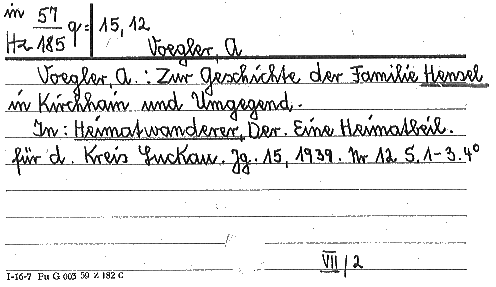 in 57 q: 15, 12
Hz 185
Voegler, A
Voegler, A.: Zur Geschichte der Familie Hensel
in Kirchhain und Umgegend.
In: Heimatwanderer, Der. Eine Heimatbeil.
für d. Kreis Luckau. Jg. 15, 1939. Nr 12 S. 1-3. 4°
VII/2
I-16-7 Fu G 003 59 Z 182 C